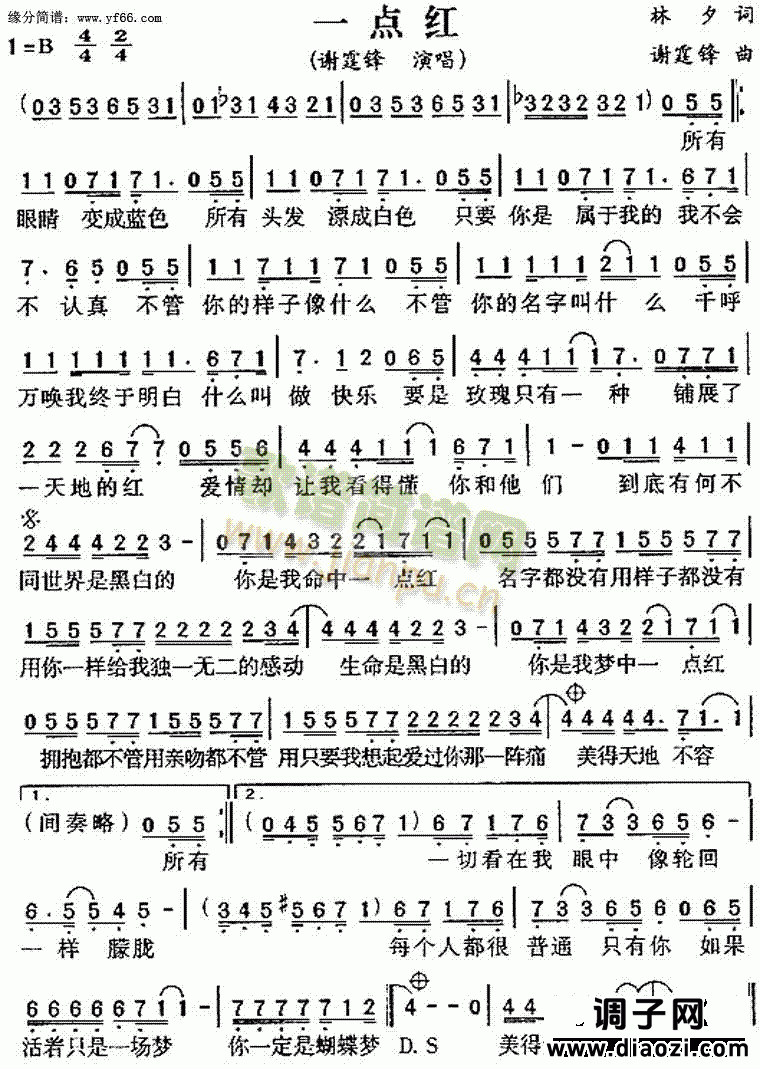 缘分简谱：www.yf66.com
一点红
林 夕 词
1=B 4/4 2/4
(谢霆锋 演唱)
谢霆锋 曲
(03536531 | 01♭31 4321 | 03536531 | ♭3232321) 055
所有
1107171. 055 | 1107171. 055 | 1107171. 671
眼睛 变成蓝色 所有 头发 漂成白色 只要 你是 属于我的 我不会
7. 65055 | 1171171055 | 11111211055
不 认真 不管 你的样子像什么 不管 你的名字叫什 么 千呼
1111111. 671 | 7. 12065 | 4441117. 0771
万唤我终于明白 什么叫 做 快乐 要是 玫瑰只有一 种 铺展了
2226770556 | 444111671 | 1-011411
一天地的红 爱情却 让我看得懂 你和他 们 到底有何不
24444223- | 07143221711 | 05557715557 7
同世界是黑白的 你是我命中一 点红 名字都没有用样子都没有
1555772222234 | 44444223- | 07143221711
用你一样给我独一无二的感动 生命是黑白的 你是我梦中一 点红
055577155577 | 1555772222234 | 4444. 71. 1
拥抱都不管用亲吻都不管 用只要我想起爱过你那一阵痛 美得天地 不容
1. 2.
(间奏略) 055 (0455671) 67176 | 733656-
所有 一切看在我 眼中 像轮回
6. 5545- | (345#5671) 67177 | 7336560 56
一样 朦胧 每个人都很 普通 只有你 如果
6666671 1- | 7777712 | 4--0 | 44
活着只是一场梦 你一定是蝴蝶梦 D.S 美得
调子网
www.diaozi.com
歌谱简谱网
www.jianpu.cn